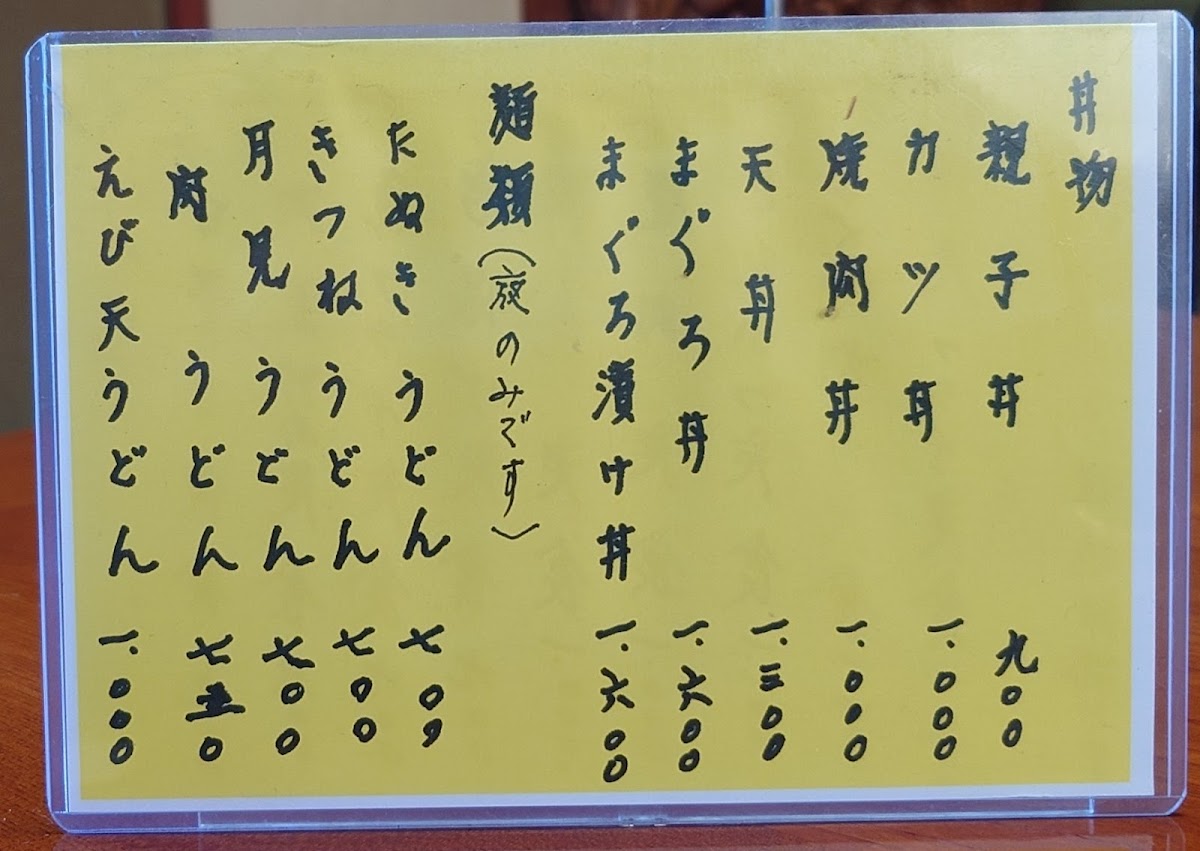 丼物
親子丼 九〇〇
カツ丼 一.〇〇〇
焼肉丼 一.〇〇〇
天丼 一.三〇〇
まぐろ丼 一.六〇〇
まぐろ漬け丼 一.六〇〇
麺類(夜のみです)
たぬきうどん 七〇〇
きつねうどん 七〇〇
月見うどん 七〇〇
肉うどん 七五〇
えび天うどん 一.〇〇〇